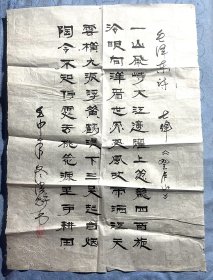 毛泽東诗 七律
一山飛峙大江邊躍上葱蘢四百旋
冷眼向洋看世界熱風吹雨洒江天
雲横九派浮黄鶴浪下三吴起白烟
陶令不知何處去桃花源里可耕田
壬申年